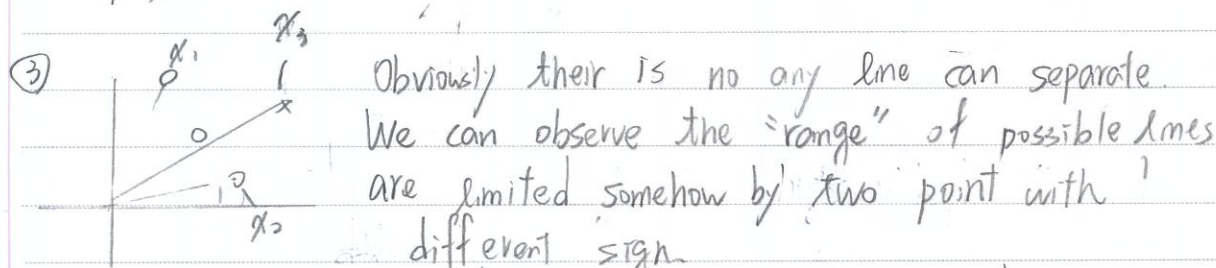 ③
x₁
x₃
x₂
Obviously their is no any line can separate.
We can observe the "range" of possible lines
are limited somehow by two point with
different sign